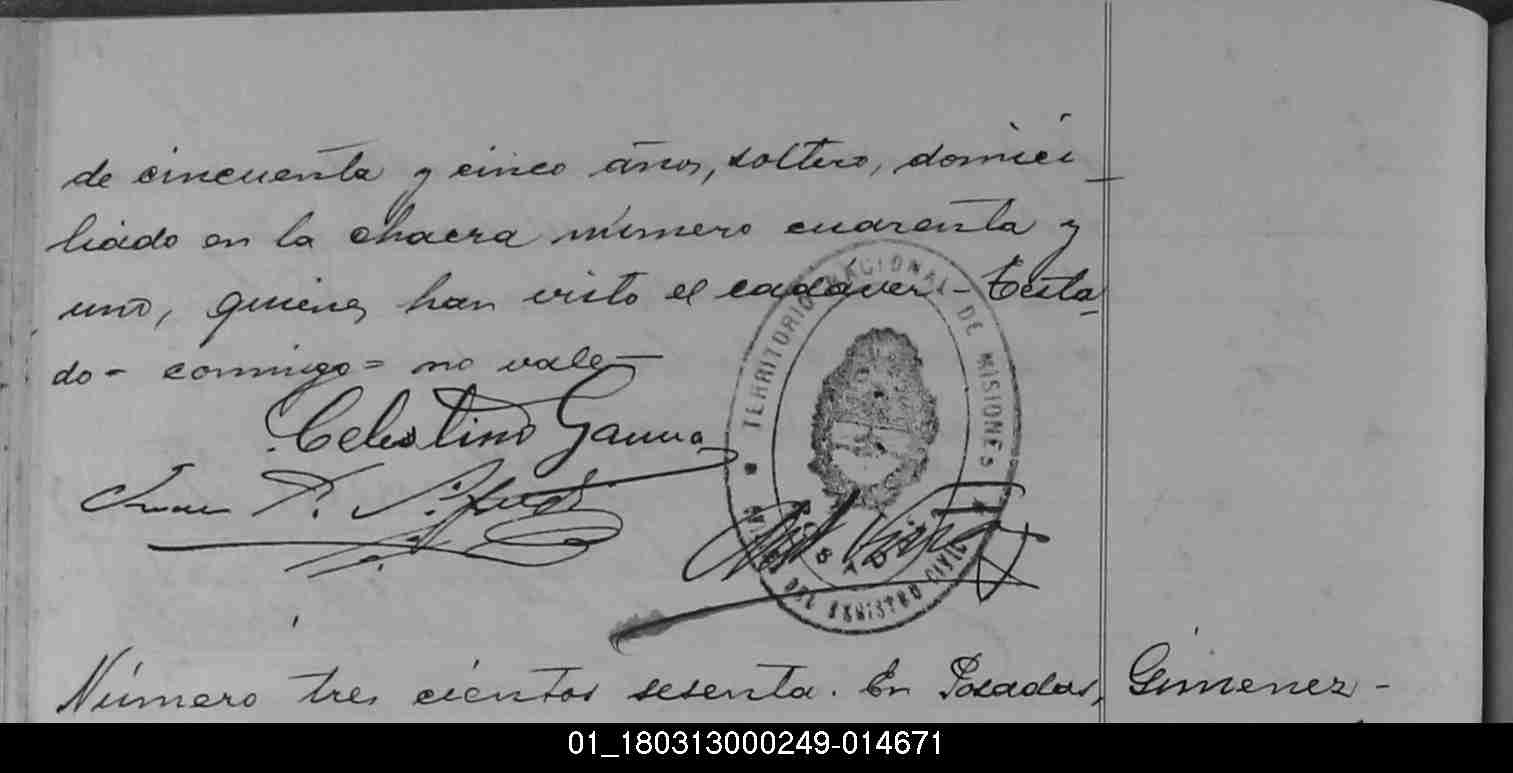 de cincuenta y cinco años, soltero, domici
liado en la chacra número cuarenta y
uno, quienes han visto el cadáver - Testa-
do - conmigo = no vale -
Celestino Gauna
Juan P.
TERRITORIO NACIONAL DE MISIONES
DEL REGISTRO CIVIL
Número tres cientos sesenta. En Posadas,
Gimenez -
01_180313000249-014671